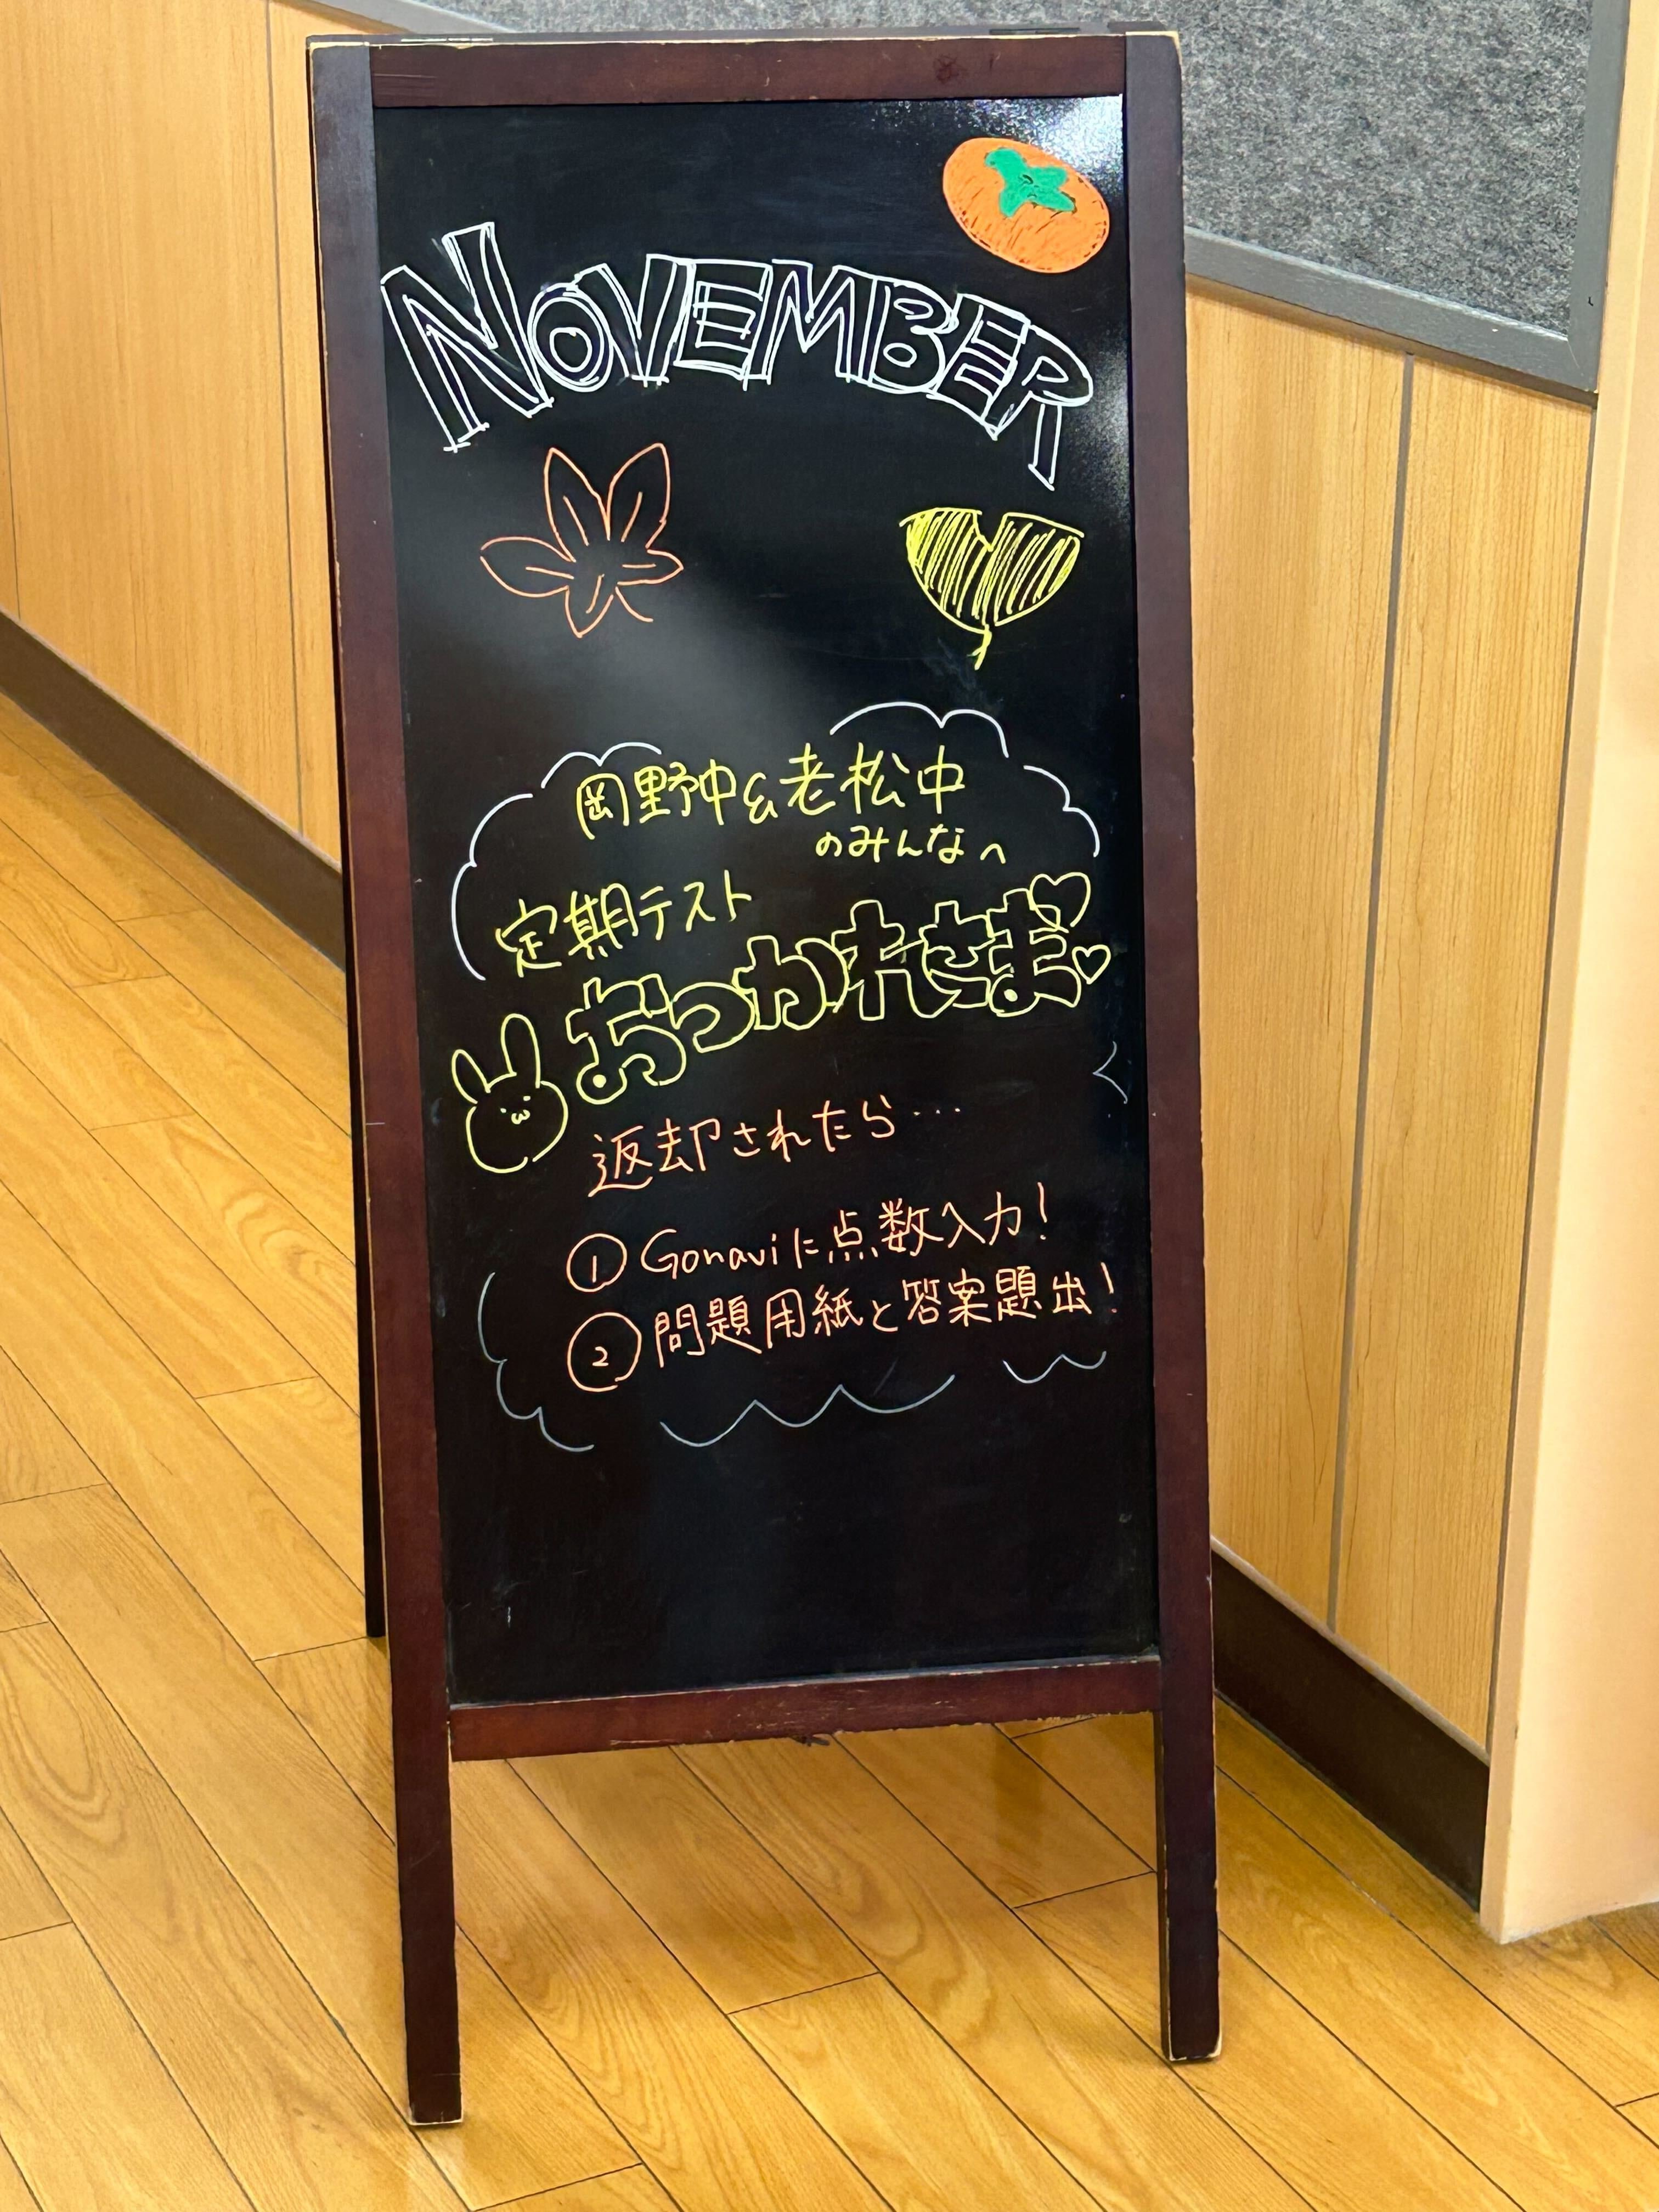 NOVEMBER
岡野中&老松中
のみんなへ
定期テスト
おつかれさま
返却されたら…
① Gonaviに点数入力!
② 問題用紙と答案題出!